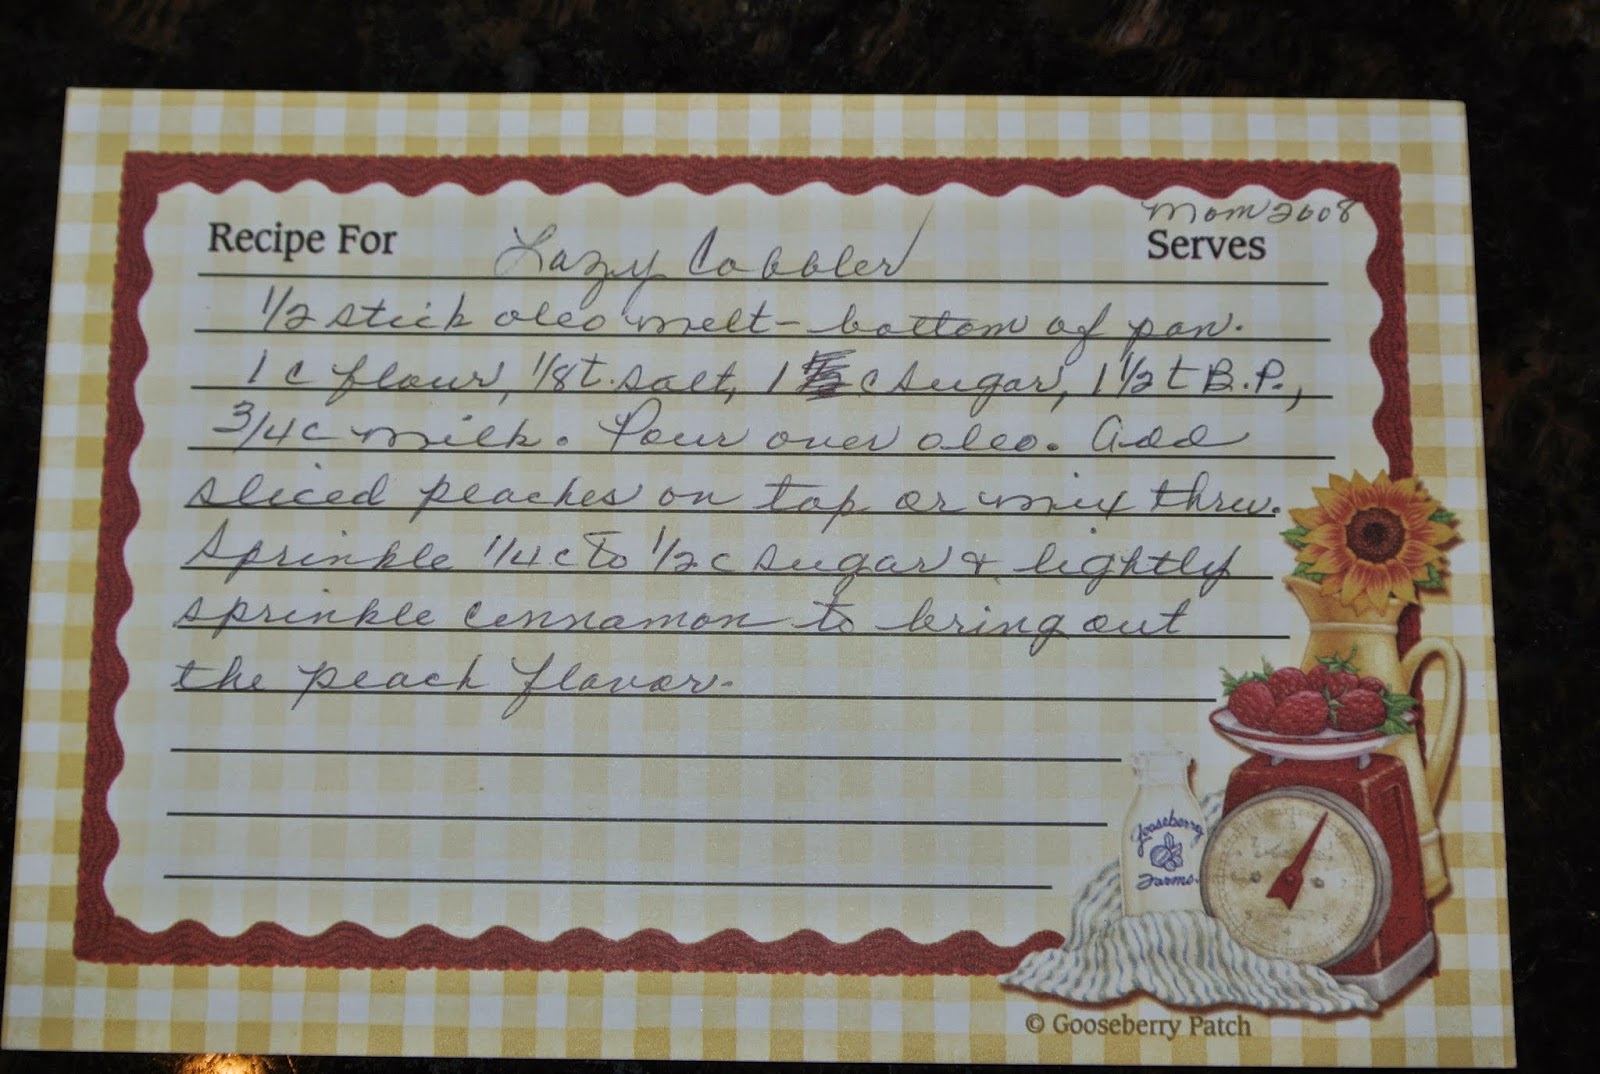 Mom 2008
Recipe For Lazy Cobbler Serves
1/2 stick oleo melt - bottom of pan.
1 c flour, 1/8 t. salt, 1 c sugar, 1 1/2 t B.P.,
3/4 c milk. Pour over oleo. Add
sliced peaches on top or mix thru.
Sprinkle 1/4 c to 1/2 c sugar & lightly
sprinkle cinnamon to bring out
the peach flavor.
Gooseberry
Farms
© Gooseberry Patch